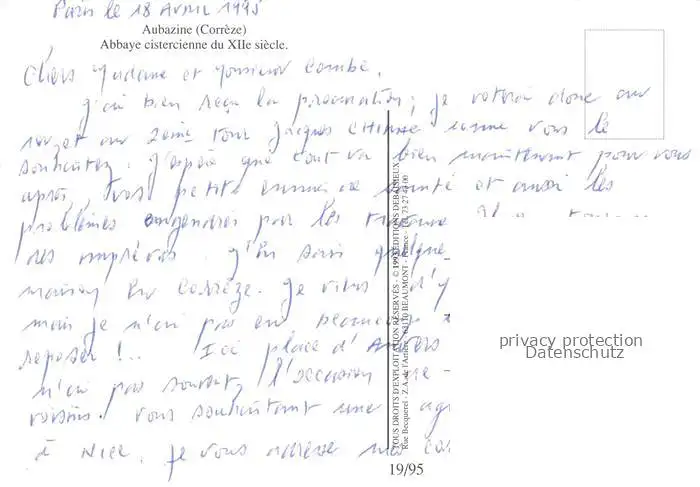 Paris le 18 Avril 1995
Aubazine (Corrèze)
Abbaye cistercienne du XIIe siècle.
Chers Madame et Monsieur Combe,
J'ai bien reçu la procuration; je voterai donc au
2eme tour Jacques CHIRAC comme vous le
souhaitez. J'espère que tout va bien maintenant pour vous
après vos petits ennuis de santé et aussi les
problèmes engendrés par les travaux
des imprévus. J'en sais quelque
maison en Corrèze. Je viens d'y
mais je n'ai pas eu beaucoup
reposer !.. Ici place d'Anvers
n'ai pas souvent l'occasion de
voisins. Vous souhaitant une agr
à Nice, je vous adresse mes
TOUS DROITS D'EXPLOITATION RÉSERVÉS - © 1993 ÉDITIONS DEBAISIEUX
Rue Becquerel - Z.A. de l'Artière - 63110 BEAUMONT - France - Tél. 73-27-45-00
19/95
privacy protection
Datenschutz